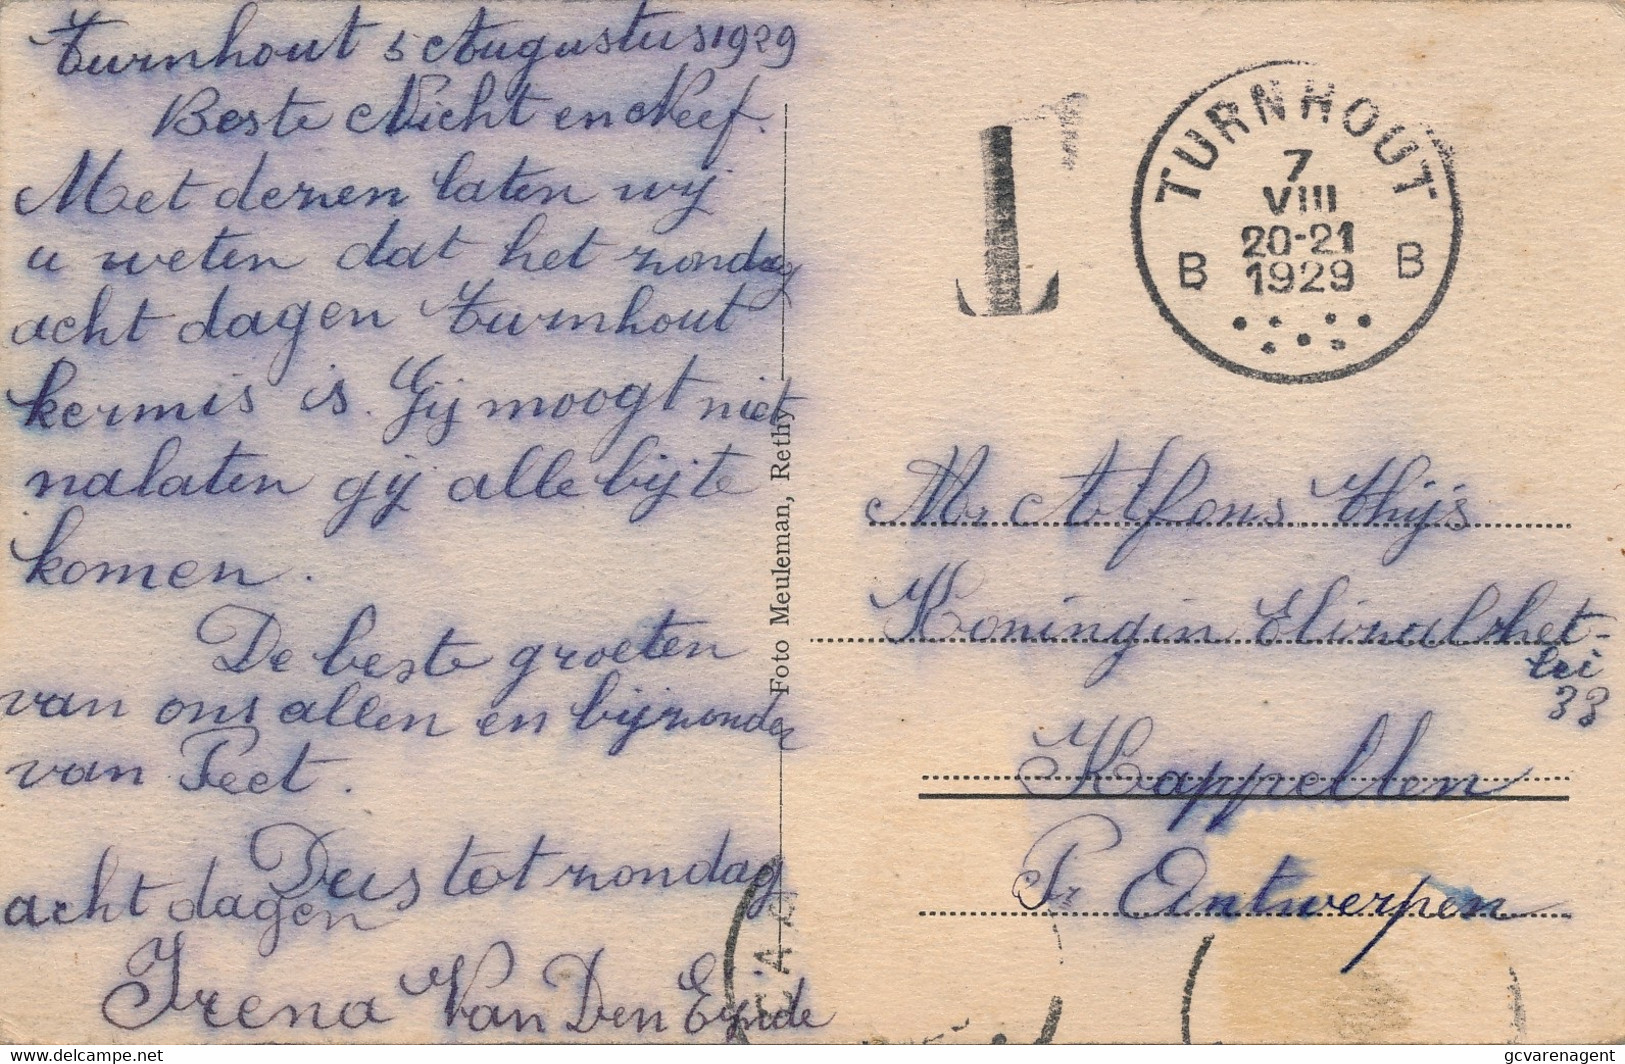 Turnhout 5 Augustus 1929
Beste Nicht en Neef.
Met dezen laten wij
u weten dat het zondag
acht dagen Turnhout
kermis is. Gij moogt niet
nalaten gij alle bij te
komen.
De beste groeten
van ons allen en bijzonder
van Peet.
Dus tot zondag
acht dagen
Irena Van Den Eynde
Foto Meuleman, Rethy
T
TURNHOUT
7
VIII
20-21
1929
B B
Mr Alfons Thijs
Koningin Elizabhet-
lei
33
Kappellen
Pr Antwerpen
delcampe.net
gcvarenagent